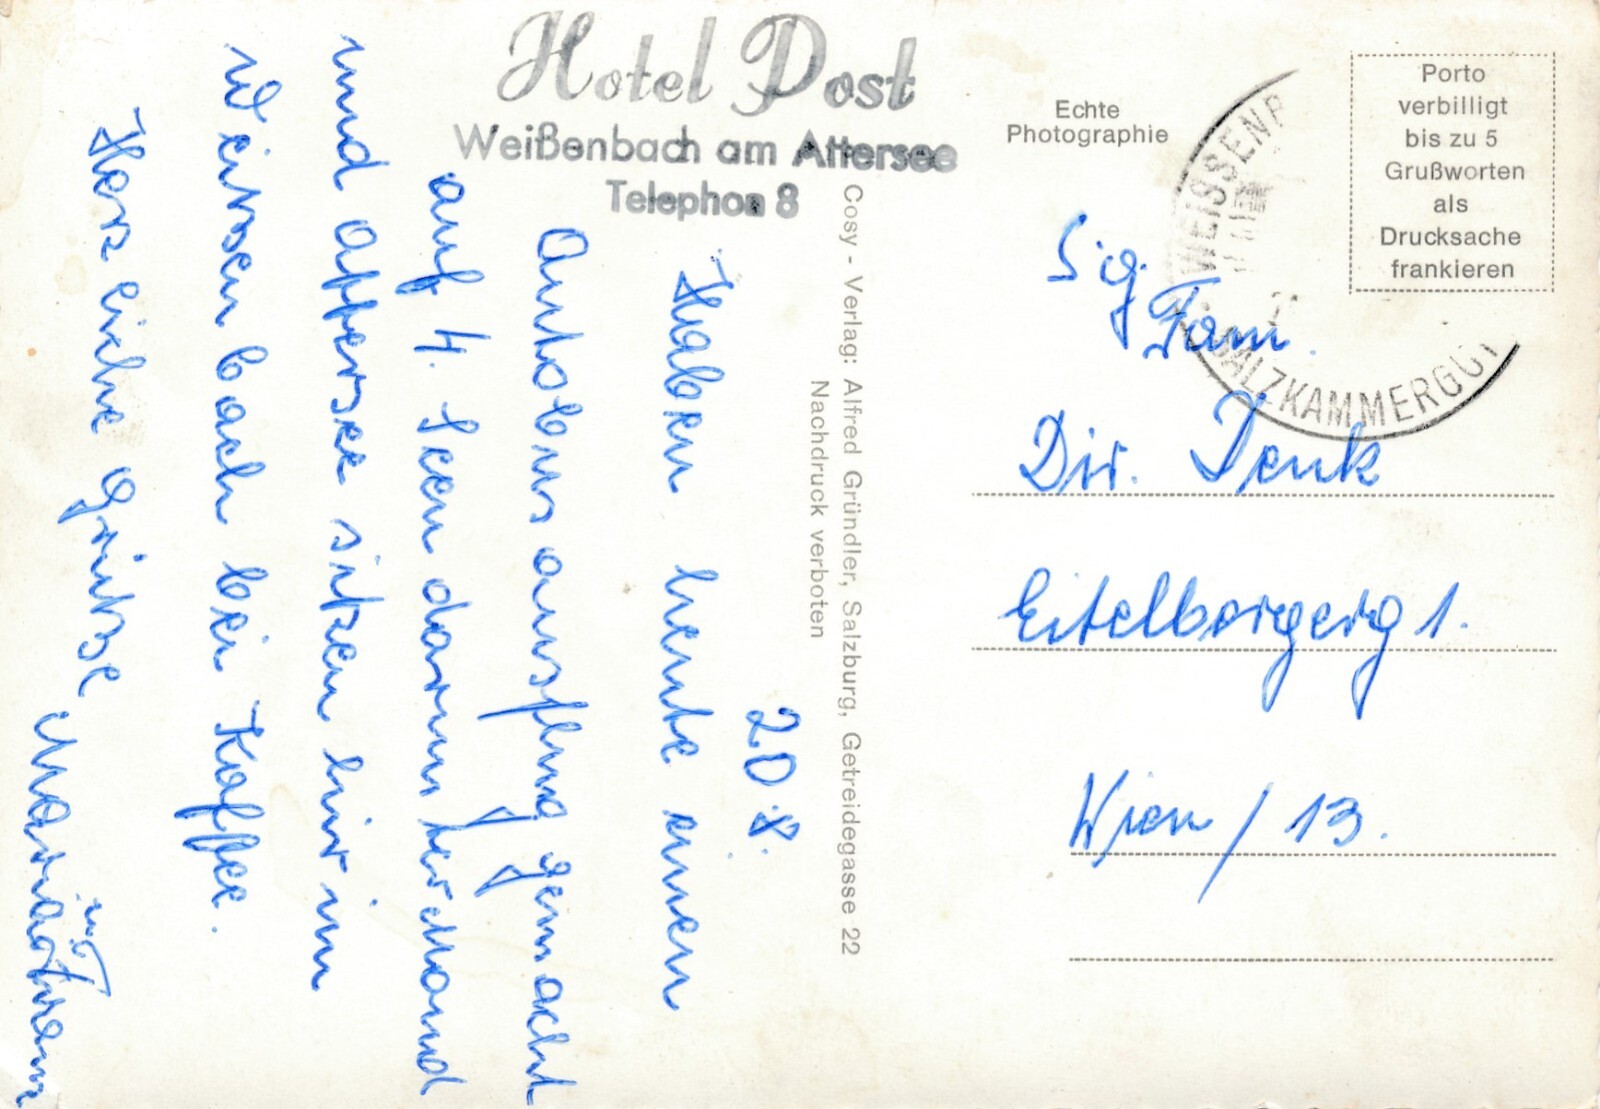 Hotel Post
Weißenbach am Attersee
Telephon 8
20.8.
Haben heute einen
Autobusausflug gemacht
auf 4. Seen darunter Mond
und Attersee sitzen hir im
Weitsenbach bei Kaffee.
Herzliche Grüße
Cosy - Verlag: Alfred Gründler, Salzburg, Getreidegasse 22
Nachdruck verboten
Echte
Photographie
Porto
verbilligt
bis zu 5
Grußworten
als
Drucksache
frankieren
WEISSENB
SALZKAMMERGUT
S. g.
Fam.
Dir. Denk
Eitelbergerg 1.
Wien / 13.